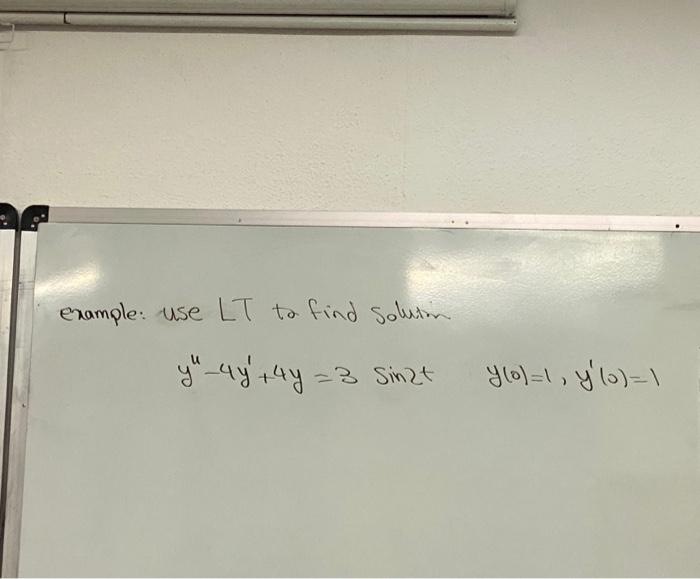 example: use LT to find solution
y"-4y'+4y=3 sin2t y(0)=1, y'(0)=1